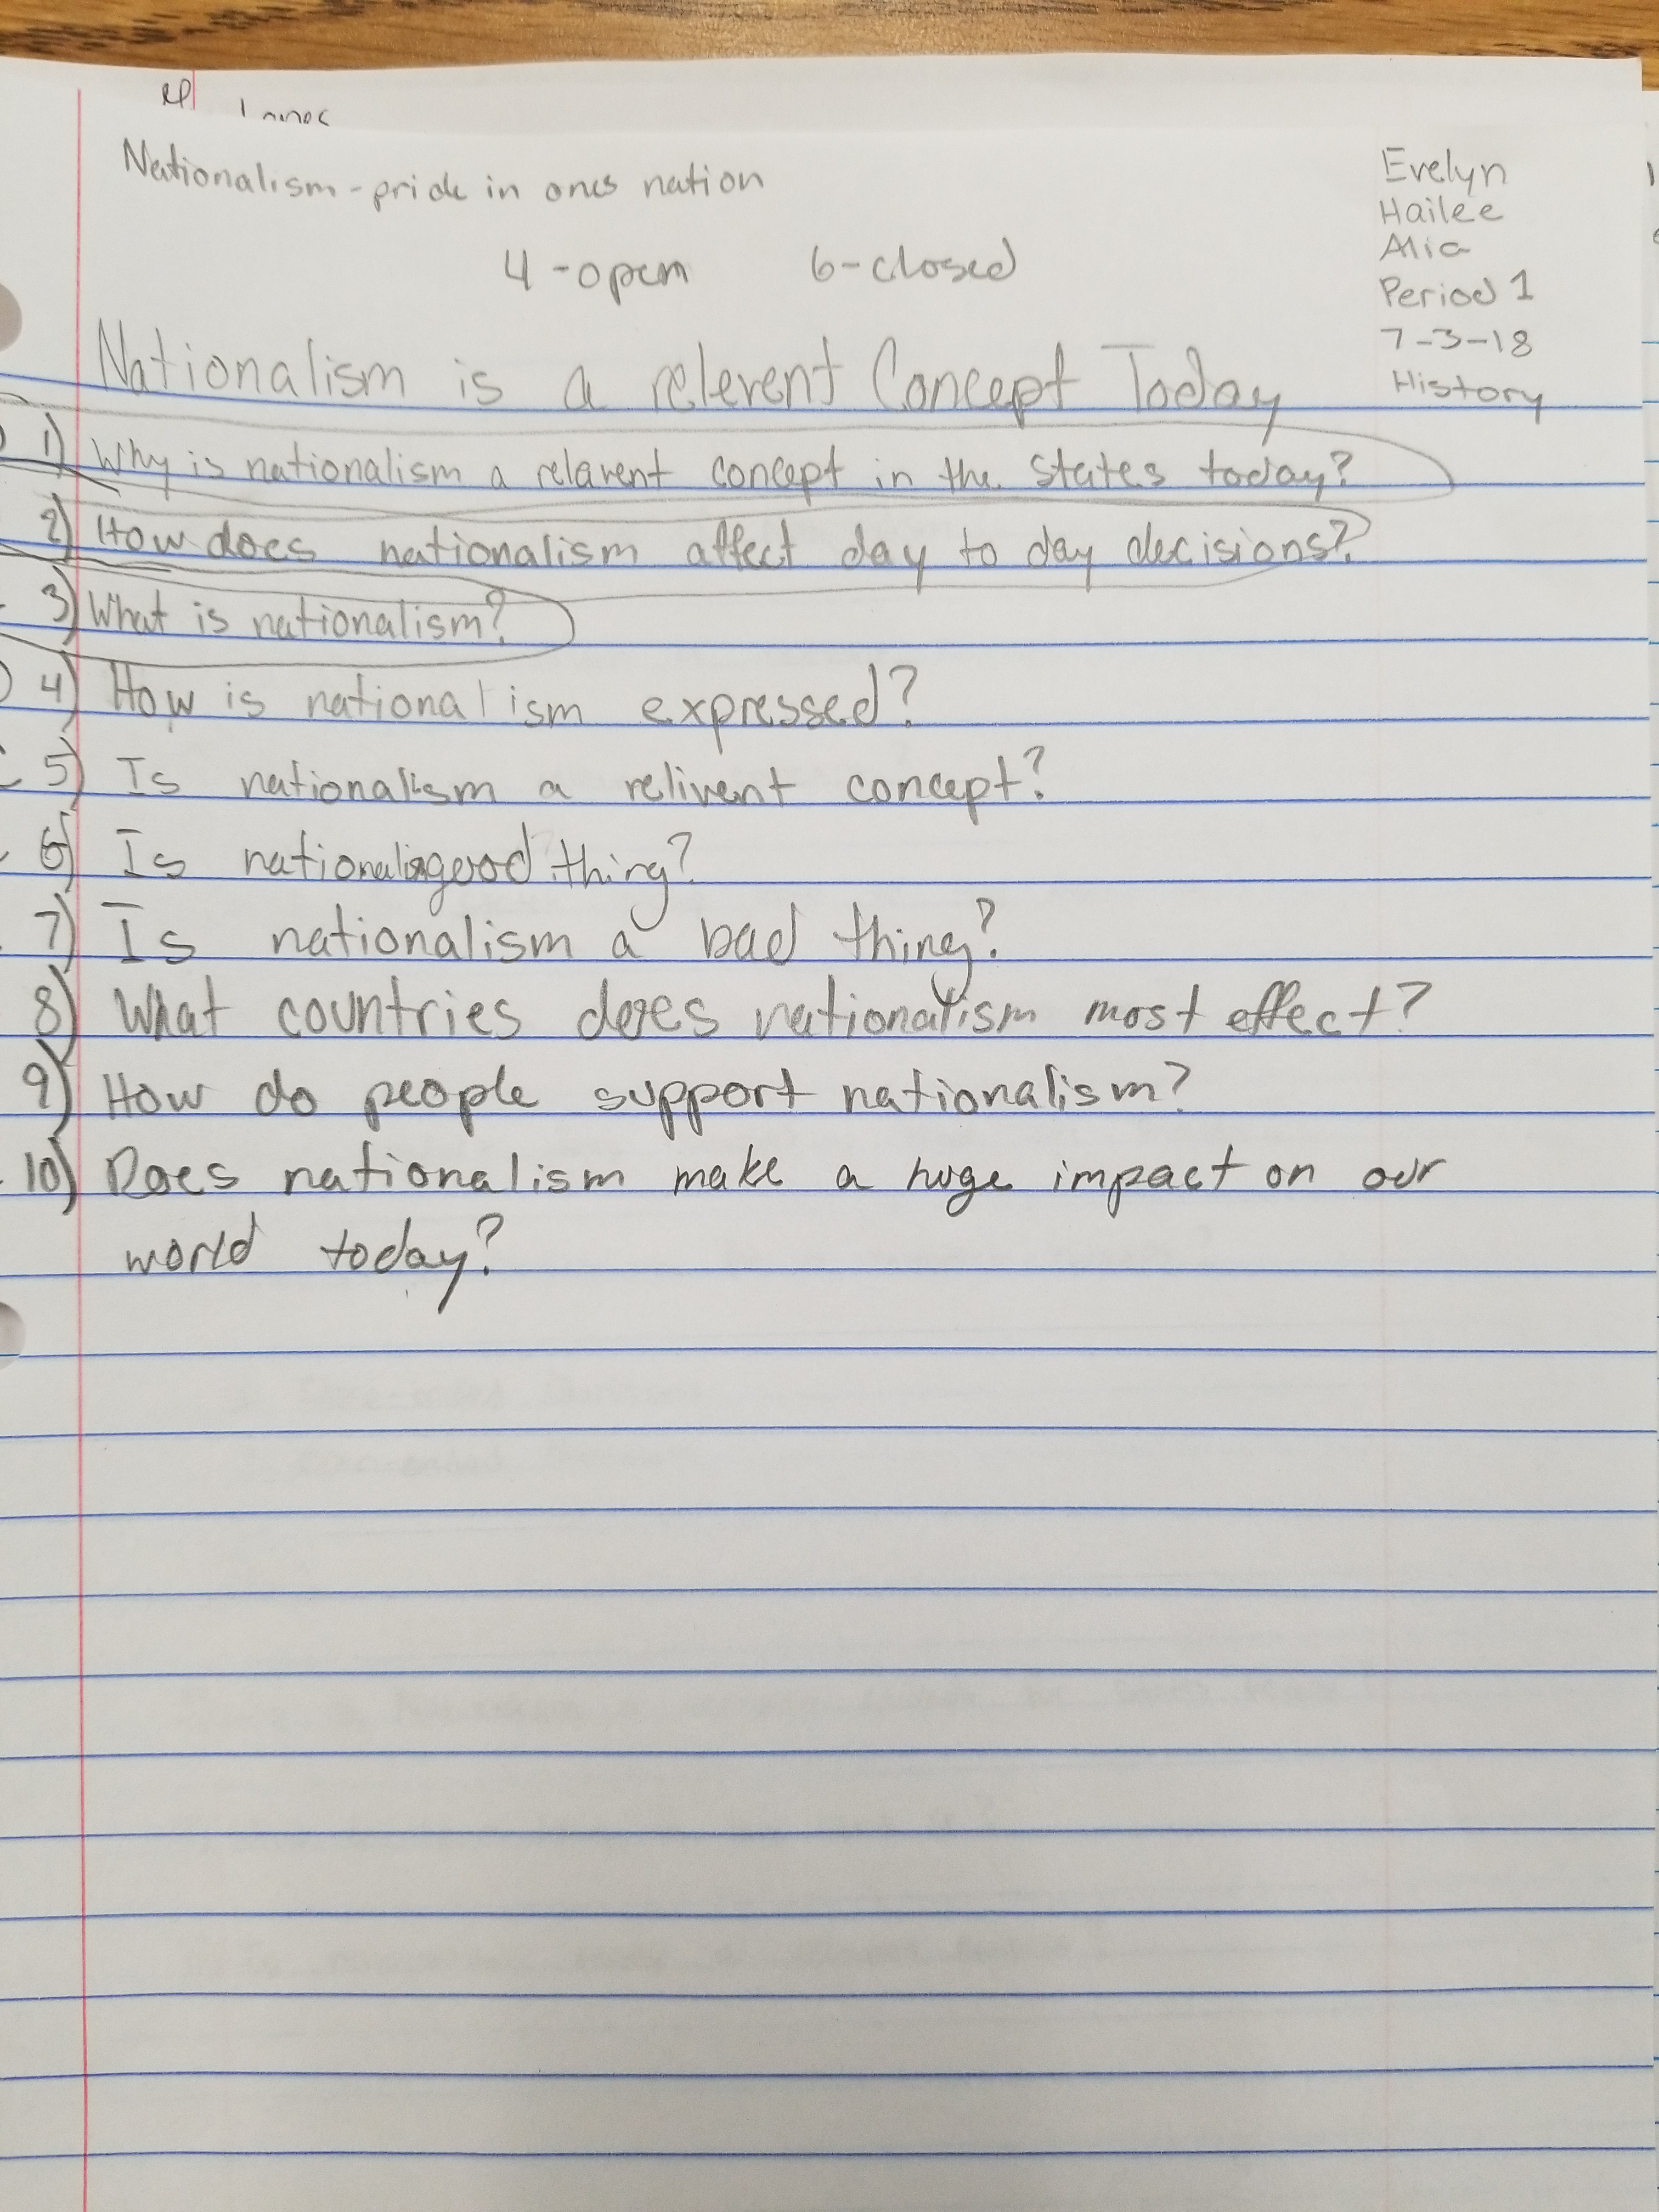 Nationalism - pride in ones nation
Evelyn
Hailee
Alia
Period 1
7-3-18
History
4 - open 6 - closed
Nationalism is a relerent Concept Today
1) Why is nationalism a relavent concept in the states today?
2) How does nationalism affect day to day decisions?
3) What is nationalism?
4) How is nationalism expressed?
5) Is nationalism a relivent concept?
6) Is good thing?
7) Is nationalism a bad thing?
8) What countries does nationalism most effect?
9) How do people support nationalism?
10) Does nationalism make a huge impact on our
world today?